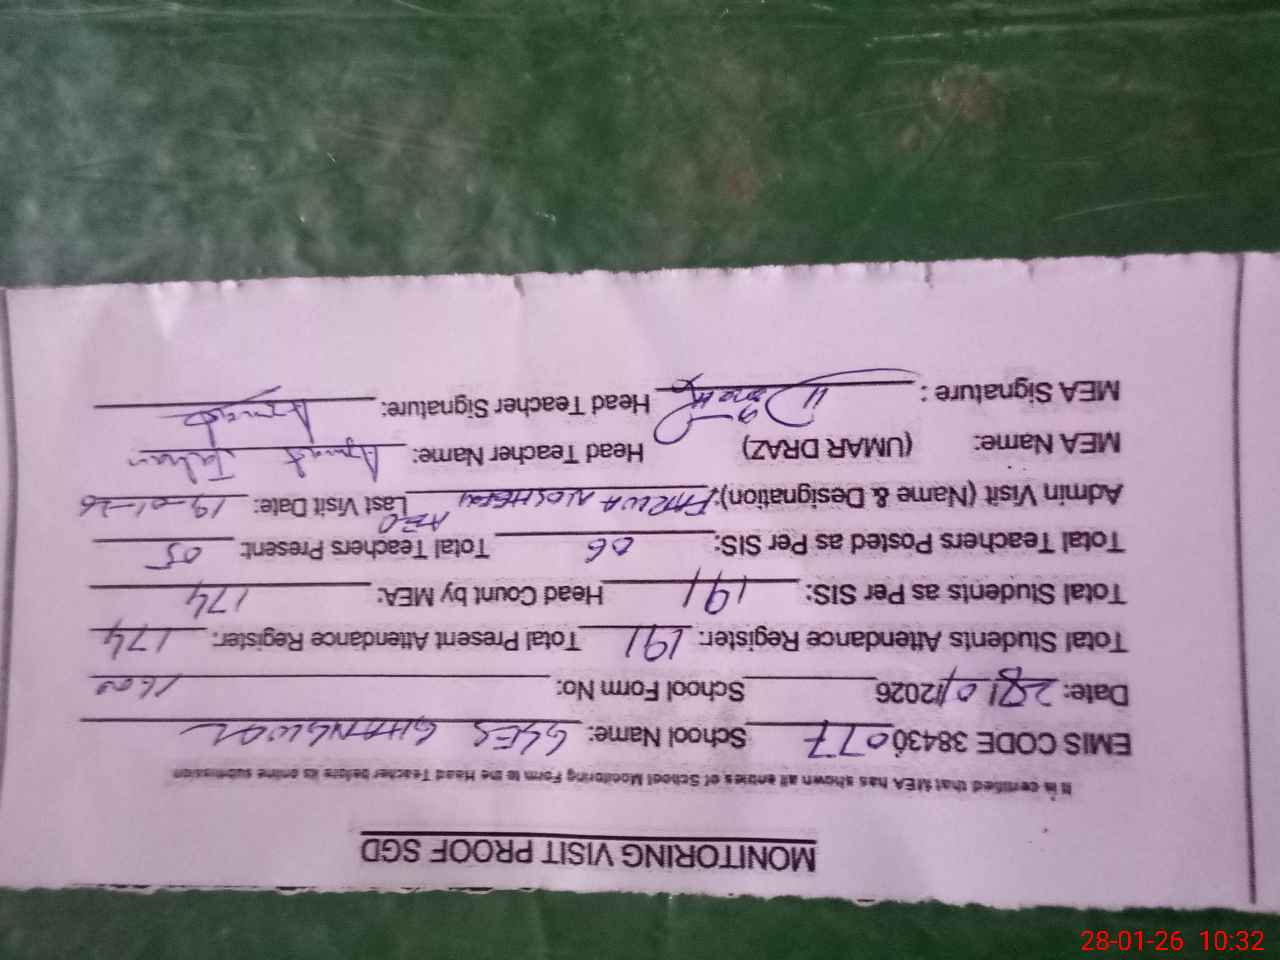 MONITORING VISIT PROOF SGD
It is certified that MEA has shown all entries of School Monitoring Form to the Head Teacher before its online submission
EMIS CODE 38430077 School Name: GGES GHANGWAL
Date: 28/01/2026 School Form No: 1600
Total Students Attendance Register: 191 Total Present Attendance Register: 174
Total Students as Per SIS: 191 Head Count by MEA: 174
Total Teachers Posted as Per SIS: 06 Total Teachers Present: 05
Admin Visit (Name & Designation): FARWA AEO Last Visit Date: 19-01-26
MEA Name: (UMAR DRAZ) Head Teacher Name:
MEA Signature: Head Teacher Signature:
28-01-26 10:32